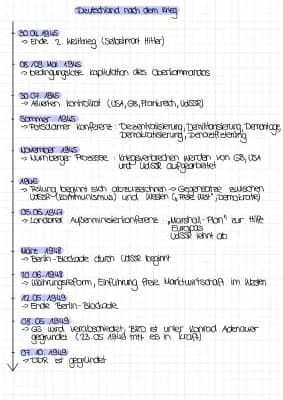 Deutschland nach dem Krieg
30.04.1945
→ Ende 2. Weltkrieg (Selbstmord Hitler)
08./09. Mai 1945
→ bedingungslose Kapitulation des Oberkommandos
30.07.1945
→ Alliierten Kontrollrat (USA, GB, Frankreich, UdSSR)
Sommer 1945
→ Potsdamer Konferenz: Dezentralisierung, Demilitarisierung, Demontage,
Demokratisierung, Denazifizierung
November 1945
→ Nürnberger Prozesse: Kriegsverbrechen werden von GB, USA
und UdSSR aufgearbeitet
1946
→ Teilung beginnt sich abzuzeichnen → Gegensätze zwischen
UdSSR (Kommunismus) und Westen („Freie Welt", Demokratie)
05.06.1947
→ Londoner Außenministerkonferenz: „Marshall-Plan" zur Hilfe
Europas
UdSSR lehnt ab
März 1948
→ Berlin-Blockade durch UdSSR beginnt
20.06.1948
→ Währungsreform, Einführung freie Marktwirtschaft im Westen
12.05.1949
→ Ende Berlin-Blockade
08.05.1949
→ GG wird verabschiedet, BRD ist unter Konrad Adenauer
gegründet (23.05.1949 tritt es in Kraft)
07.10.1949
→ DDR ist gegründet